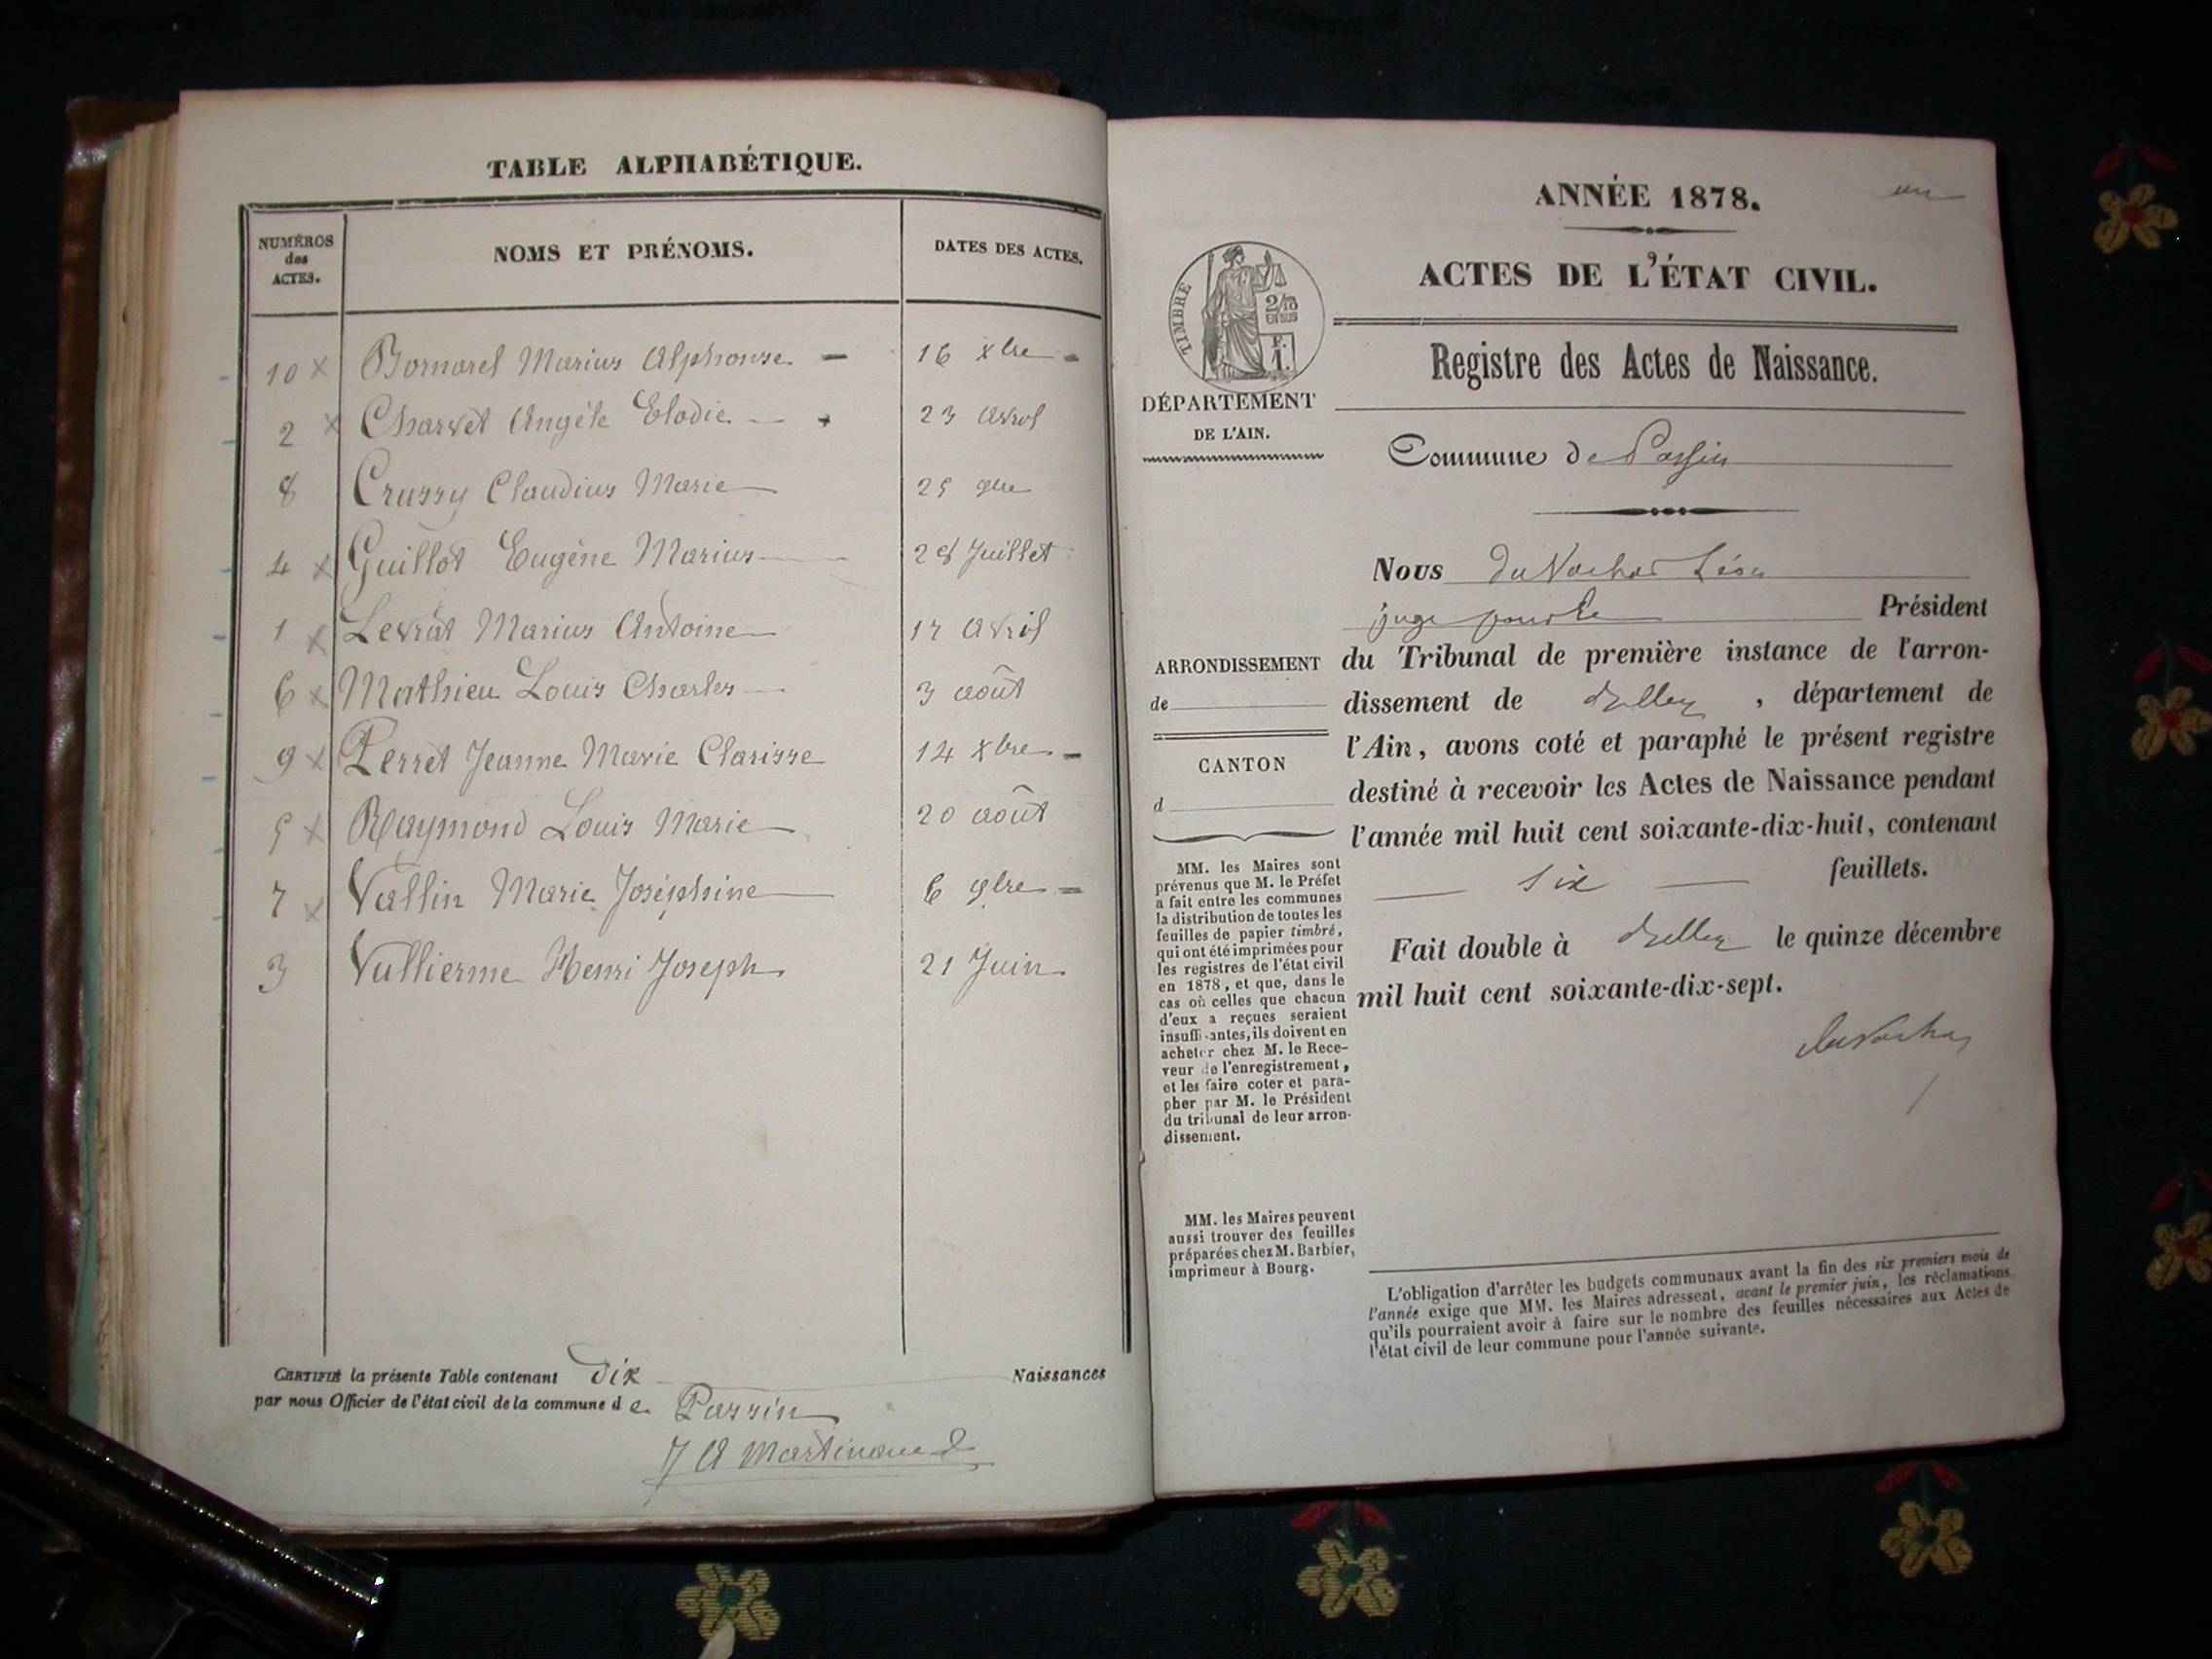 TABLE ALPHABÉTIQUE.
NUMÉROS
des
ACTES.
NOMS ET PRÉNOMS.
DATES DES ACTES.
10 x Bornarel Marius Alphonse — 16 xbre -
2 x Charvet Angèle Elodie — 23 Avril
8 Crussy Claudius Marie 25 9bre
4 x Guillot Eugène Marius 28 Juillet
1 x Levrat Marius Antoine 17 Avril
6 x Mathieu Louis Charles 3 août
9 x Perret Jeanne Marie Clarisse 14 xbre -
5 x Raymond Louis Marie 20 août
7 x Vallin Marie Joséphine 6 9bre -
3 Vullierme Henri Joseph 21 Juin
CERTIFIÉ la présente Table contenant Dix Naissances
par nous Officier de l'état civil de la commune de Passin
J A Martinand
un
ANNÉE 1878.
ACTES DE L'ÉTAT CIVIL.
TIMBRE
2/10
EN SUS
F.
1.
Registre des Actes de Naissance.
DÉPARTEMENT
DE L'AIN.
Commune de Passin
Nous Du Vachat Léon
juge pour le Président
du Tribunal de première instance de l'arron-
dissement de Belley, département de
l'Ain, avons coté et paraphé le présent registre
destiné à recevoir les Actes de Naissance pendant
l'année mil huit cent soixante-dix-huit, contenant
six feuillets.
Fait double à Belley le quinze décembre
mil huit cent soixante-dix-sept.
duvachat
ARRONDISSEMENT
de
CANTON
d
MM. les Maires sont
prévenus que M. le Préfet
a fait entre les communes
la distribution de toutes les
feuilles de papier timbré,
qui ont été imprimées pour
les registres de l'état civil
en 1878, et que, dans le
cas où celles que chacun
d'eux a reçues seraient
insuffisantes, ils doivent en
acheter chez M. le Rece-
veur de l'enregistrement,
et les faire coter et para-
pher par M. le Président
du tribunal de leur arron-
dissement.
MM. les Maires peuvent
aussi trouver des feuilles
préparées chez M. Barbier,
imprimeur à Bourg.
L'obligation d'arrêter les budgets communaux avant la fin des six premiers mois de
l'année exige que MM. les Maires adressent, avant le premier juin, les réclamations
qu'ils pourraient avoir à faire sur le nombre des feuilles nécessaires aux Actes de
l'état civil de leur commune pour l'année suivante.